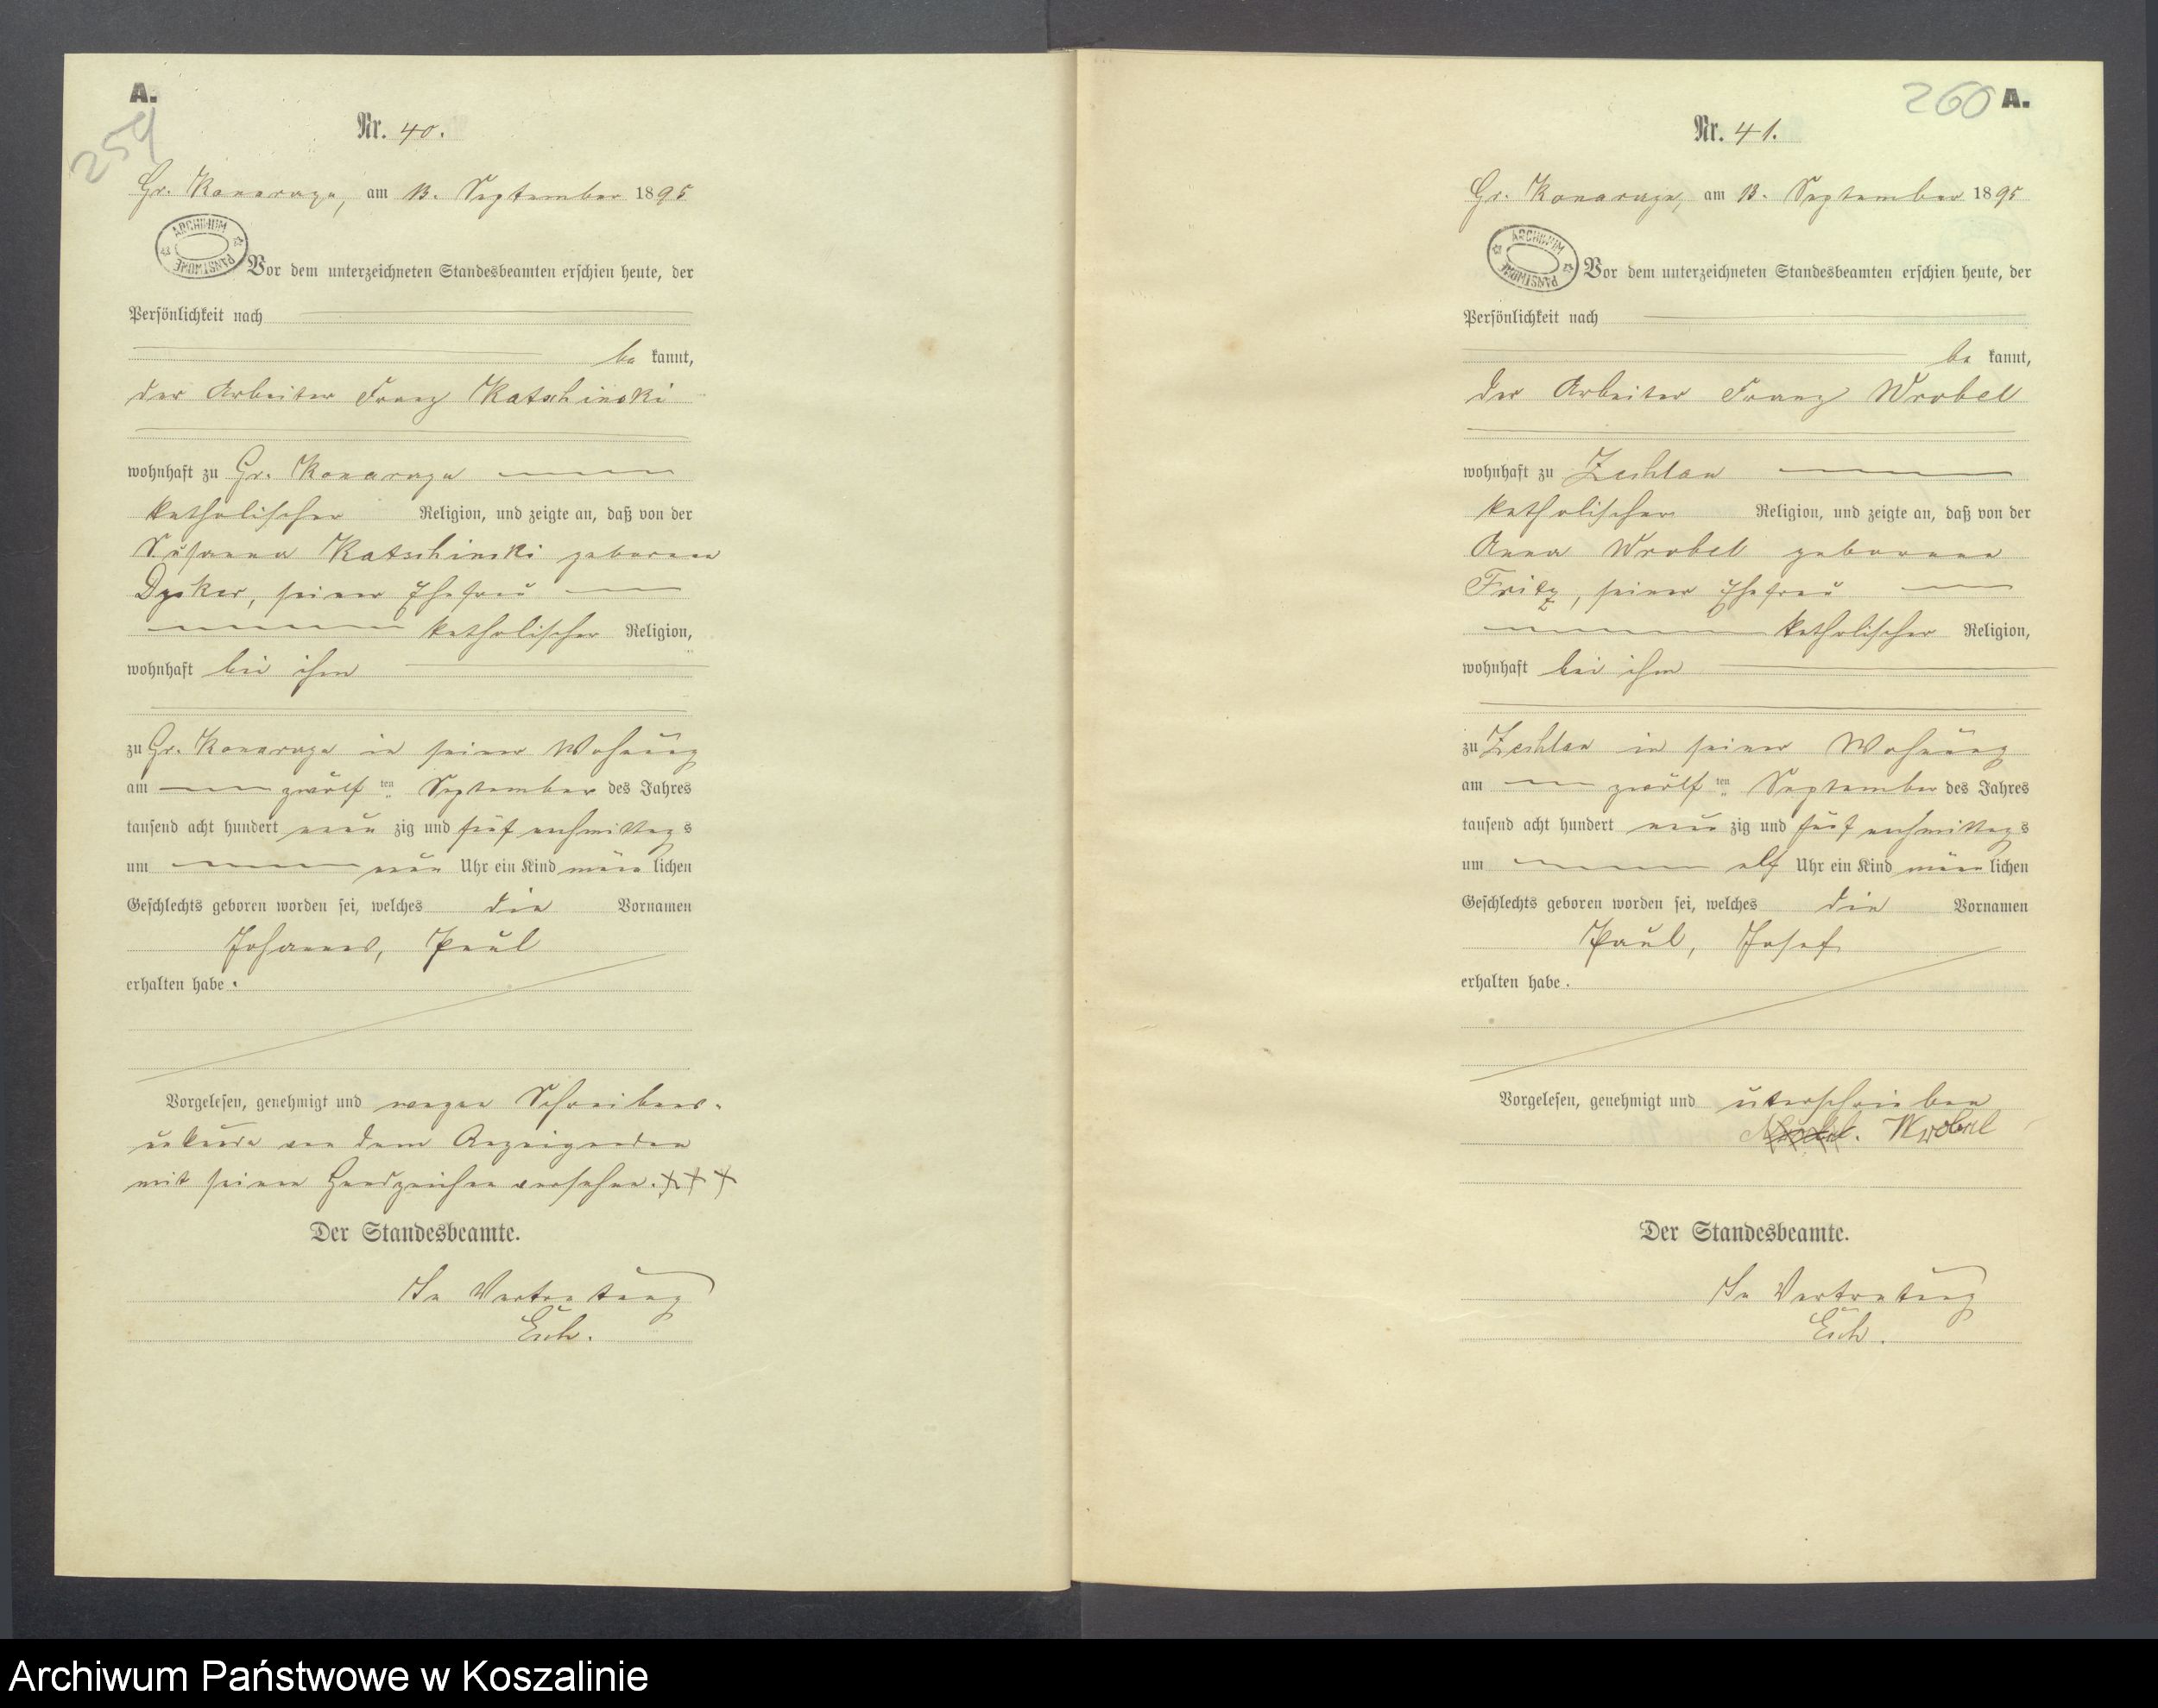 A.
259
Nr. 40.
Gr. Konarzyn, am 13. September 1895
ARCHIWUM PAŃSTWOWE
Vor dem unterzeichneten Standesbeamten erschien heute, der
Persönlichkeit nach
be kannt,
der Arbeiter Franz Katschinski
wohnhaft zu Gr. Konarzyn
katholischer Religion, und zeigte an, daß von der
Susanna Katschinski geborene
Dysker, seiner Ehefrau
katholischer Religion,
wohnhaft bei ihm
zu Gr. Konarzyn in seiner Wohnung
am zwölf ten September des Jahres
tausend acht hundert neun zig und fünf nachmittags
um neun Uhr ein Kind männ lichen
Geschlechts geboren worden sei, welches die Vornamen
Johannes, Paul
erhalten habe.
Vorgelesen, genehmigt und wegen Schreibens-
unkunde von dem Anzeigenden
mit seinen Handzeichen versehen. + + +
Der Standesbeamte.
In Vertretung
260 A.
Nr. 41.
Gr. Konarzyn, am 13. September 1895
ARCHIWUM PAŃSTWOWE
Vor dem unterzeichneten Standesbeamten erschien heute, der
Persönlichkeit nach
be kannt,
der Arbeiter Franz Wrobel
wohnhaft zu Zechlau
katholischer Religion, und zeigte an, daß von der
Anna Wrobel geborene
Fritz, seiner Ehefrau
katholischer Religion,
wohnhaft bei ihm
zu Zechlau in seiner Wohnung
am zwölf ten September des Jahres
tausend acht hundert neun zig und fünf nachmittags
um elf Uhr ein Kind männ lichen
Geschlechts geboren worden sei, welches die Vornamen
Paul, Josef
erhalten habe.
Vorgelesen, genehmigt und unterschrieben
Wrobel
Der Standesbeamte.
In Vertretung
Archiwum Państwowe w Koszalinie